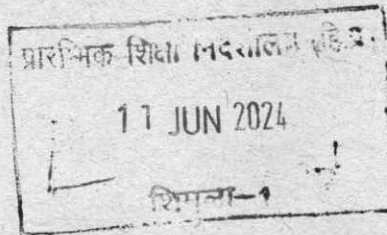 प्रारम्भिक शिक्षा निदेशालय हि.प्र.
11 JUN 2024
शिमला-1